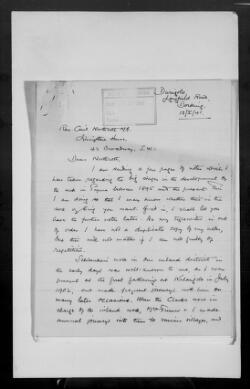 Darigols
Road,
Worthing
Rev. Cecil Northcott M.A.
Livingstone House,
42 Broadway, S.W.1
Dear Northcott,
I am sending a few pages of notes which I
have taken regarding the big stages in the development of
the work in Papua between 1895 and the present time
I am doing so that I may know whether this is the
sort of thing you want. If it is, I will let you
have the further notes later. As my typewriter is out
of order I have not a duplicate copy of my notes,
but this will not matter if I am not guilty of
repetition.
work in the inland districts in
the early days was well known to me, as I was
present at the first gathering at in July
1902, and made frequent journeys with him on
many later occasions. When the Clarks were in
charge of the inland work, Mrs & I made
several journeys with them to various villages, and